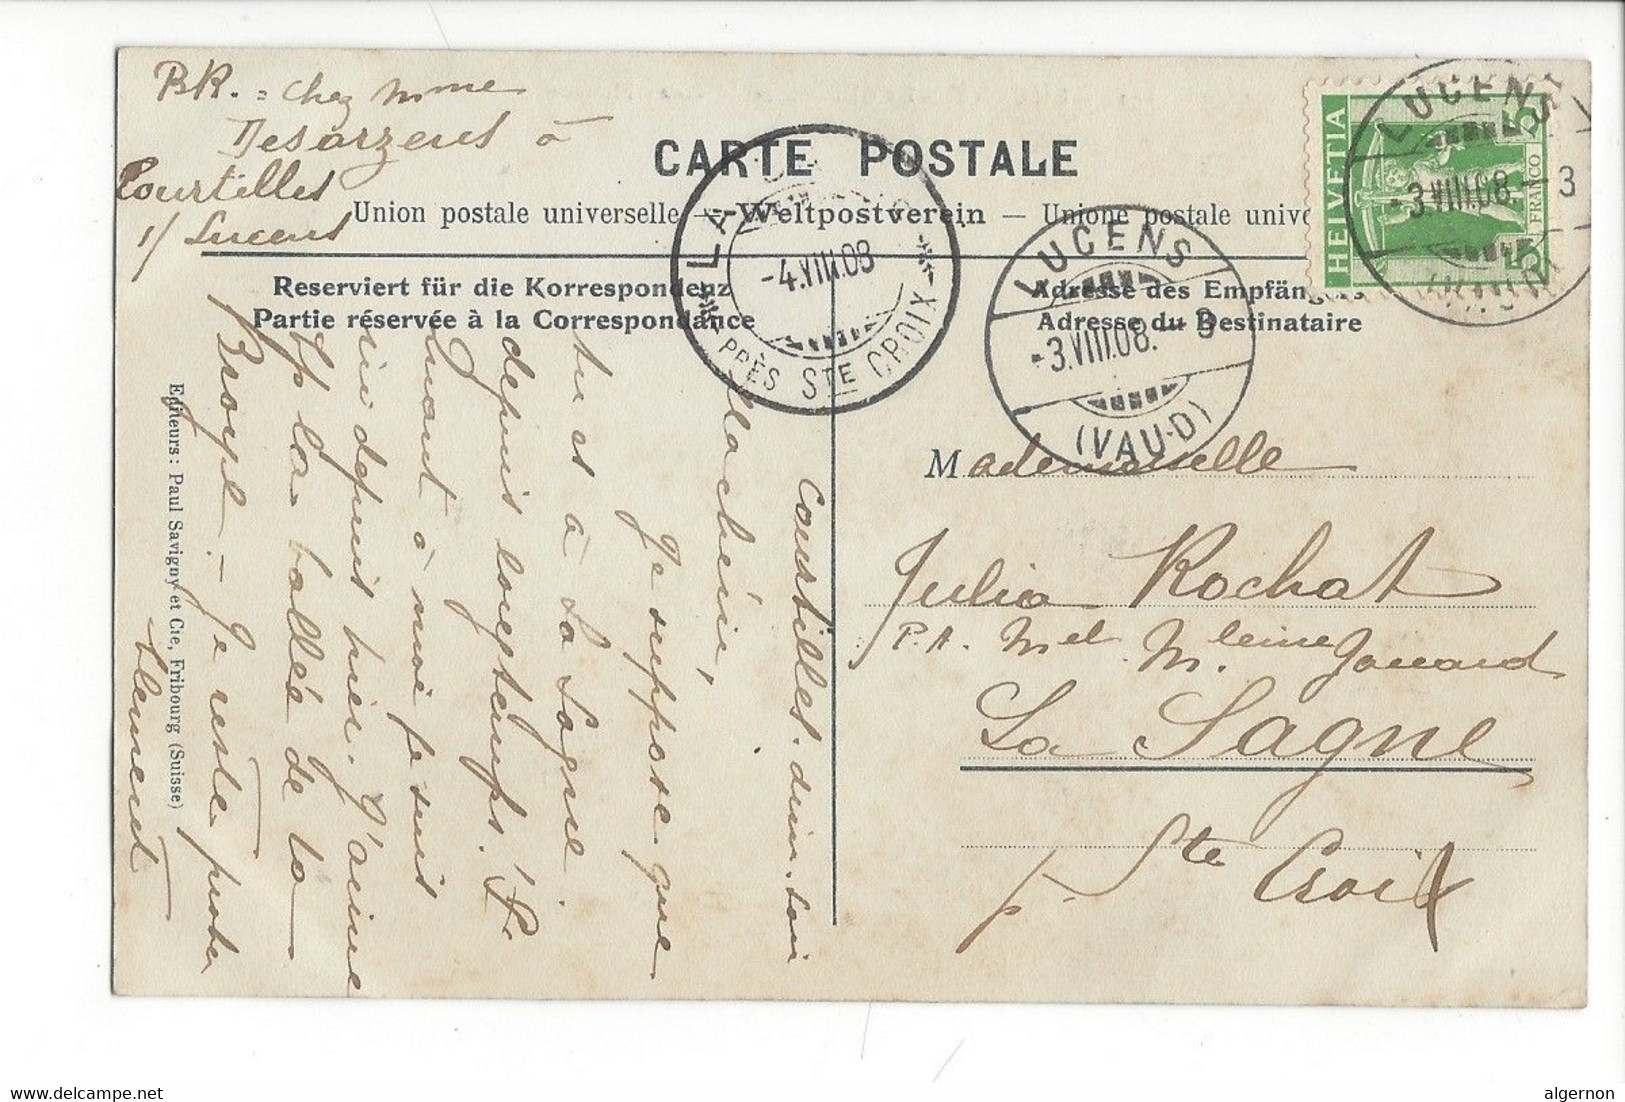 BR. = chez Mme
Desarzens à
Courtilles
s/ Lucens
CARTE POSTALE
Union postale universelle — Weltpostverein — Unione postale univ
Reserviert für die Korrespondenz
Partie réservée à la Correspondance
Adresse des Empfängers
Adresse du Destinataire
HELVETIA
5
5
FRANCO
LUCENS
-3.VIII.08.-3
(VAUD)
LUCENS
-3.VIII.08.-3
(VAUD)
LA
-4.VIII.08
PRÈS STE CROIX
Mademoiselle
Julia Rochat
P.A. M et M.
La Sagne
p. Ste Croix
Courtilles. dim. soir
Ma chérie,
Je suppose que
tu es à La Sagne
depuis longtemps.
Quant à moi je suis
ici depuis hier. J'aime
la vallée de la
Broye. — Je reste
Clément
Editeurs: Paul Savigny et Cie, Fribourg (Suisse)
algernon